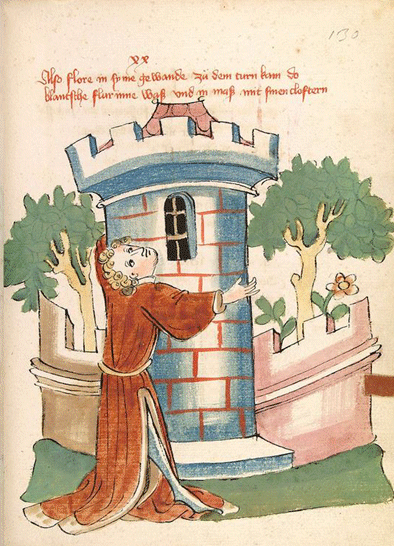 130
xx
Also flore in syme gewande zü dem turn kam do
blantsche flur inne waß vnd in maß mit sinen clostern